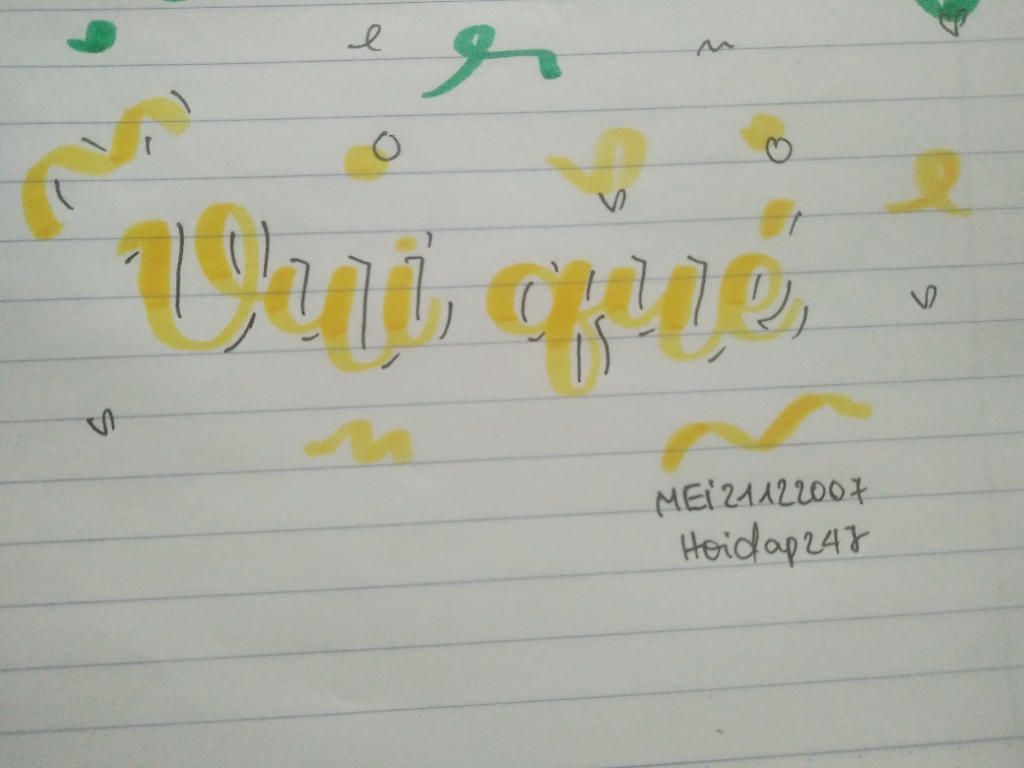 Vui qué
MEi21122007
Hoidap247